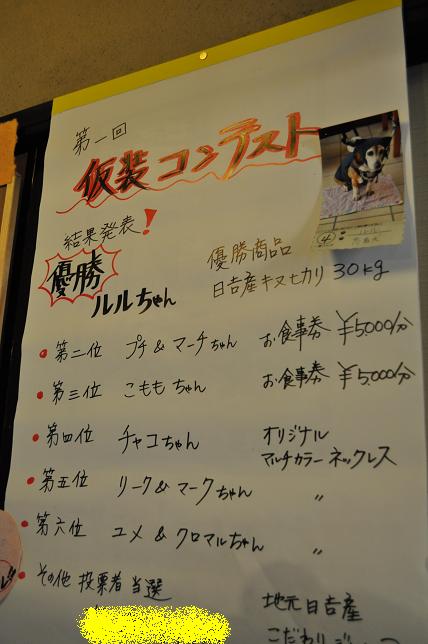 第一回
仮装コンテスト
結果発表!
優勝
ルルちゃん
優勝商品
日吉産キヌヒカリ 30kg
④
• 第二位 プチ & マーチちゃん お食事券 ¥5,000/分
• 第三位 こももちゃん お食事券 ¥5,000/分
• 第四位 チャコちゃん オリジナル
マルチカラーネックレス
• 第五位 リーク & マークちゃん 〃
• 第六位 ユメ & クロマルちゃん 〃
• その他 投票者当選
地元日吉産
こだわり